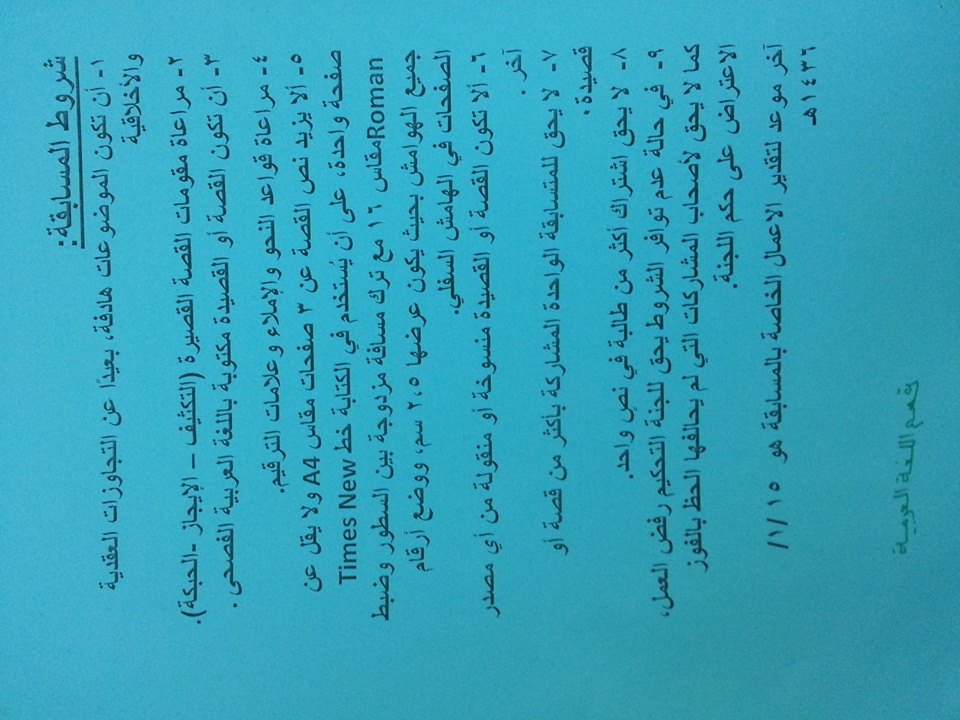 شروط المسابقة:
١- أن تكون الموضوعات هادفة، بعيدًا عن التجاوزات العقدية
والأخلاقية
٢- مراعاة مقومات القصة القصيرة (التكثيف – الإيجاز -الحبكة).
٣- أن تكون القصة أو القصيدة مكتوبة باللغة العربية الفصحى .
٤- مراعاة قواعد النحو والإملاء وعلامات الترقيم.
٥- ألا يزيد نص القصة عن ٣ صفحات مقاس A4 ولا يقل عن
صفحة واحدة، على أن يُستخدم في الكتابة خط Times New
Roman مقاس ١٦ مع ترك مسافة مزدوجة بين السطور وضبط
جميع الهوامش بحيث يكون عرضها ٢،٥ سم، ووضع أرقام
الصفحات في الهامش السفلي.
٦- ألا تكون القصة أو القصيدة منسوخة أو منقولة من أي مصدر
آخر .
٧- لا يحق للمتسابقة الواحدة المشاركة بأكثر من قصة أو
قصيدة .
٨- لا يحق اشتراك أكثر من طالبة في نص واحد.
٩- في حالة عدم توافر الشروط يحق للجنة التحكيم رفض العمل،
كما لا يحق لأصحاب المشاركات التي لم يحالفها الحظ بالفوز
الاعتراض على حكم اللجنة.
آخر موعد لتقدير الاعمال الخاصة بالمسابقة هو ١٥ /١ /
١٤٣٦هـ
قسم اللغة العربية